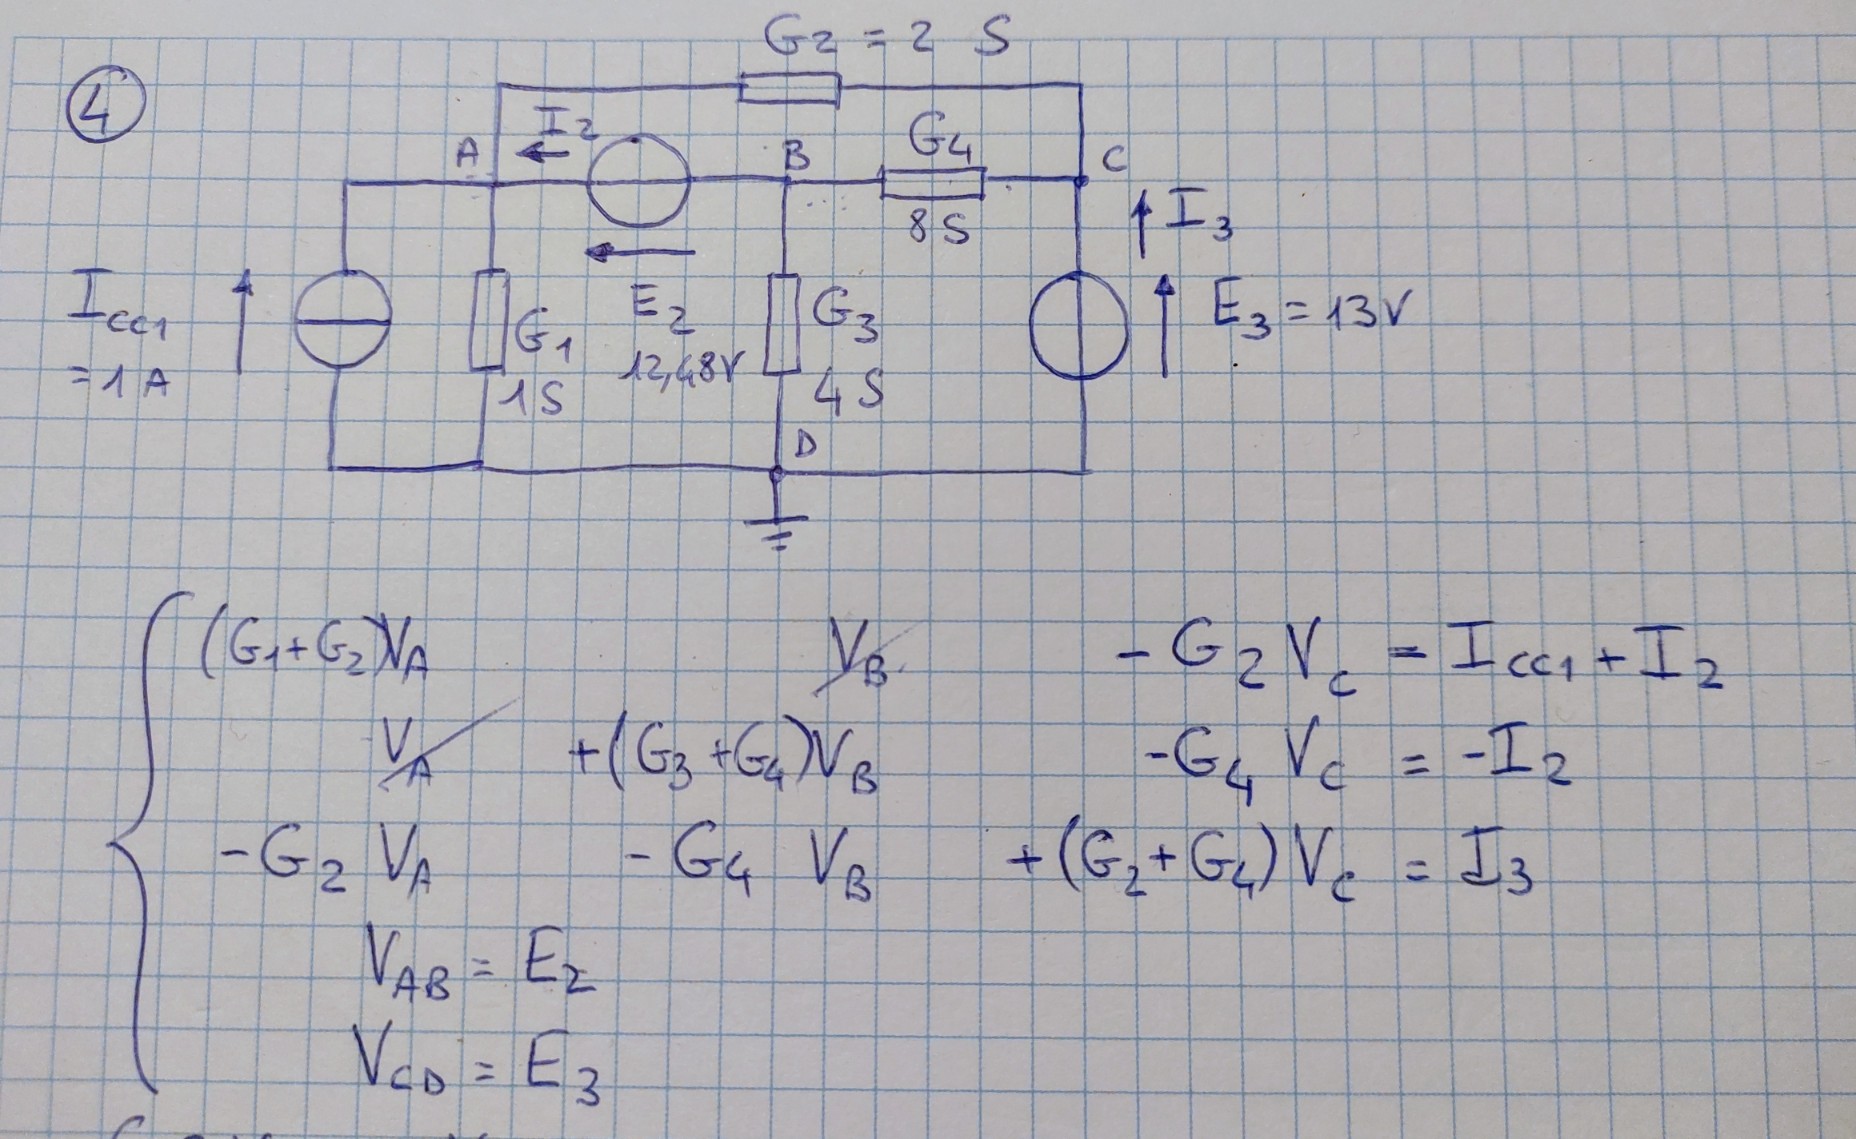 G2 = 2 S
4
I2
A
B
G4
C
8S
I3
Icc1
= 1 A
G1
1S
E2
12,48V
G3
4 S
E3 = 13V
D
(G1+G2)VA VB - G2 Vc = Icc1 + I2
VA +(G3+G4)VB -G4 Vc = -I2
-G2 VA - G4 VB +(G2+G4)Vc = I3
VAB = E2
VCD = E3